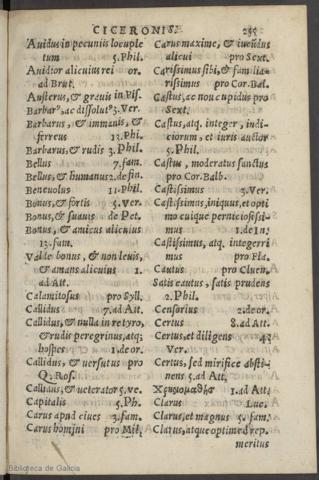 CICERONIS. 255
Auidus in pecuniis locuple
tum 5. Phil.
Auidior alicuius rei or.
ad Brut.
Austerus, & grauis in Pis.
Barbarº, ac dissolutº 3. Ver.
Barbarus, & immanis, &
ferreus 13. Phi.
Barbarus, & rudis 3. Phil.
Bellus 7. fam.
Bellus, & humanus 2. de fin.
Beneuolus 11. Phil.
Bonus, & fortis 5. Ver.
Bonus, & suauis de Pet.
Bonus, & amicus alicuius
13. fam.
Valde bonus, & non leuis,
& amans alicuius 1.
ad Att.
Calamitosus pro Syll.
Callidus 7. ad Att.
Callidus, & nulla in re tyro,
& rudis peregrinus, atq;
hospes 1. de or.
Callidus, & uersutus pro
Q. Ros.
Callidus, & ueterator 5. ve.
Capitalis 5. Ph.
Carus apud ciues 3. fam.
Carus homini pro Mil.
Carus maxime, & iucūdus
alicui pro Sext.
Carissimus sibi, & fam lia-
rissimus pro Cor. Bal.
Castus, ac non cupidus pro
Sext.
Castus, atq. integer, indi-
ciorum, et iuris auctor
5. Phil.
Castus, moderatus sanctus
pro Cor. Balb.
Castissimus 3. Ver.
Castissimus, iniquus, et opti
mo cuique perniciosissi-
mus 1. de In.
Castissimus, atq. integerri
mus pro Pla.
Cautus pro Cluen.
Satis cautus, satis prudens
2. Phil.
Censorius 2. de or.
Certus 8. ad Att.
Certus, et diligens 4.
Ver.
Certus, sed mirifice absti-
nens 5. ad Att.
1. ad Att.
Clarus Luc.
Clarus, et magnus 5. fam.
Clarus, atque optime d rep.
meritus
Biblioteca de Galicia